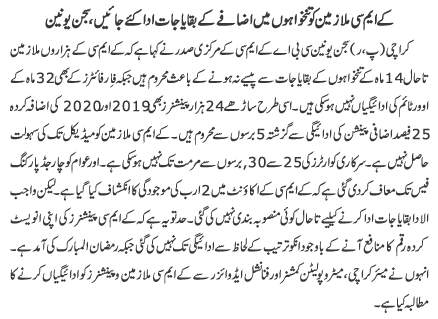 کے ایم سی ملازمین کو تنخواہوں میں اضافے کے بقایا جات ادا کئے جائیں، سجن یونین
کراچی (پ،ر) سجن یونین سی بی اے کے ایم سی کے مرکزی صدر نے کہا ہے کہ کے ایم سی کے ہزاروں ملازمین
تاحال 14 ماہ کے تنخواہوں کے بقایا جات سے پیسے نہ ہونے کے باعث محروم ہیں جبکہ فائر فائٹرز کے بھی 32 ماہ کے
اوور ٹائم کی ادائیگیاں نہیں ہوسکی ہیں۔ اسی طرح ساڑھے 24 ہزار پینشنرز بھی 2019 اور 2020 کی اضافہ کردہ
25 فیصد اضافی پینشن کی ادائیگی سے گزشتہ 5 برسوں سے محروم ہیں۔ کے ایم سی ملازمین کو میڈیکل تک کی سہولت
حاصل نہیں ہے۔ سرکاری کوارٹرز کی 25 سے 30، برسوں سے مرمت تک نہیں ہوسکی ہے۔ اور عوام کو چارجڈ پارکنگ
فیس تک معاف کردی گئی ہے کہ کے ایم سی کے اکاؤنٹ میں 2 ارب کی موجودگی کا انکشاف کیا گیا ہے۔ لیکن واجب
الادا بقایا جات ادا کرنے کیلیے تاحال کوئی منصوبہ بندی نہیں کی گئی۔ حد تو یہ ہے کہ کے ایم سی پینشنرز کی اپنی انویسٹ
کردہ رقم کا منافع آنے کے باوجود انکو ترتیب کے لحاظ سے ادائیگی تک نہیں کی گئی جبکہ رمضان المبارک کی آمد ہے۔
انہوں نے میئر کراچی، میٹروپولیٹن کمشنر اور فنانشل ایڈوائزر سے کے ایم سی ملازمین و پینشنرز کو ادائیگیاں کرنے کا
مطالبہ کیا ہے۔